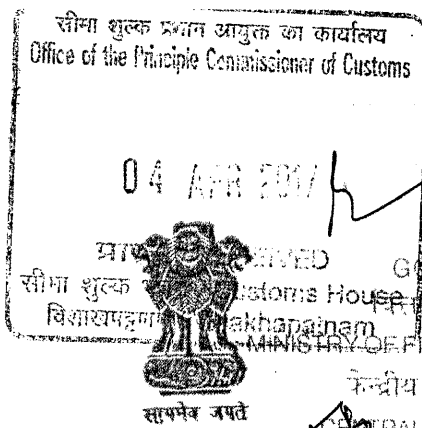 सीमा शुल्क प्रधान आयुक्त का कार्यालय
Office of the Principle Commissioner of Customs
04 APR 2017
सीमा शुल्क Customs House
विशाखपट्टणम
MINISTRY OF
केन्द्रीय
सत्यमेव जयते